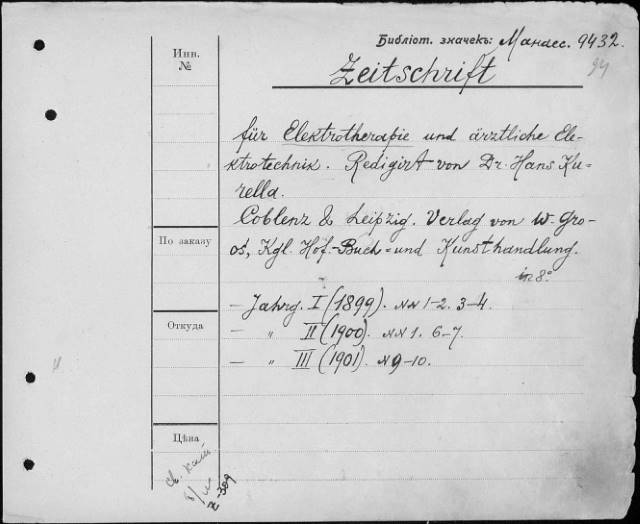 Библіот. значекъ: Мандес. 9432.
94
Инв.
№
Zeitschrift
für Elektrotherapie und ärztliche Ele-
ktrotechnik. Redigirt von Dr. Hans Ku=
rella.
Coblenz & Leipzig. Verlag von W. Gro-
os, Kgl. Hof.-Buch- und Kunsthandlung.
in 8°
По заказу
— Jahrg. I (1899). NN 1-2. 3-4.
Откуда
— „ II (1900). NN 1. 6-7.
— „ III (1901). N 9-10.
Цѣна